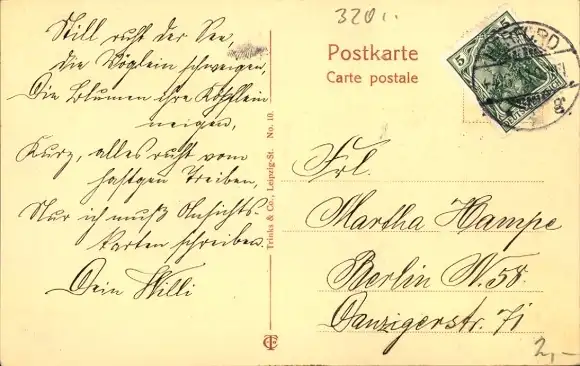 Still ruht der See,
die Vöglein schweigen,
Die Blumen ihre Köpflein
neigen,
Kurz, alles ruht vom
hastgen Treiben,
Nur ich muß Ansichts-
karten schreiben.
Dein Willi
Trinks & Co., Leipzig-St. No. 10.
3201.
Postkarte
Carte postale
5 5
Frl.
Martha Hampe
Berlin N. 58.
Danzigerstr. 71
2,-